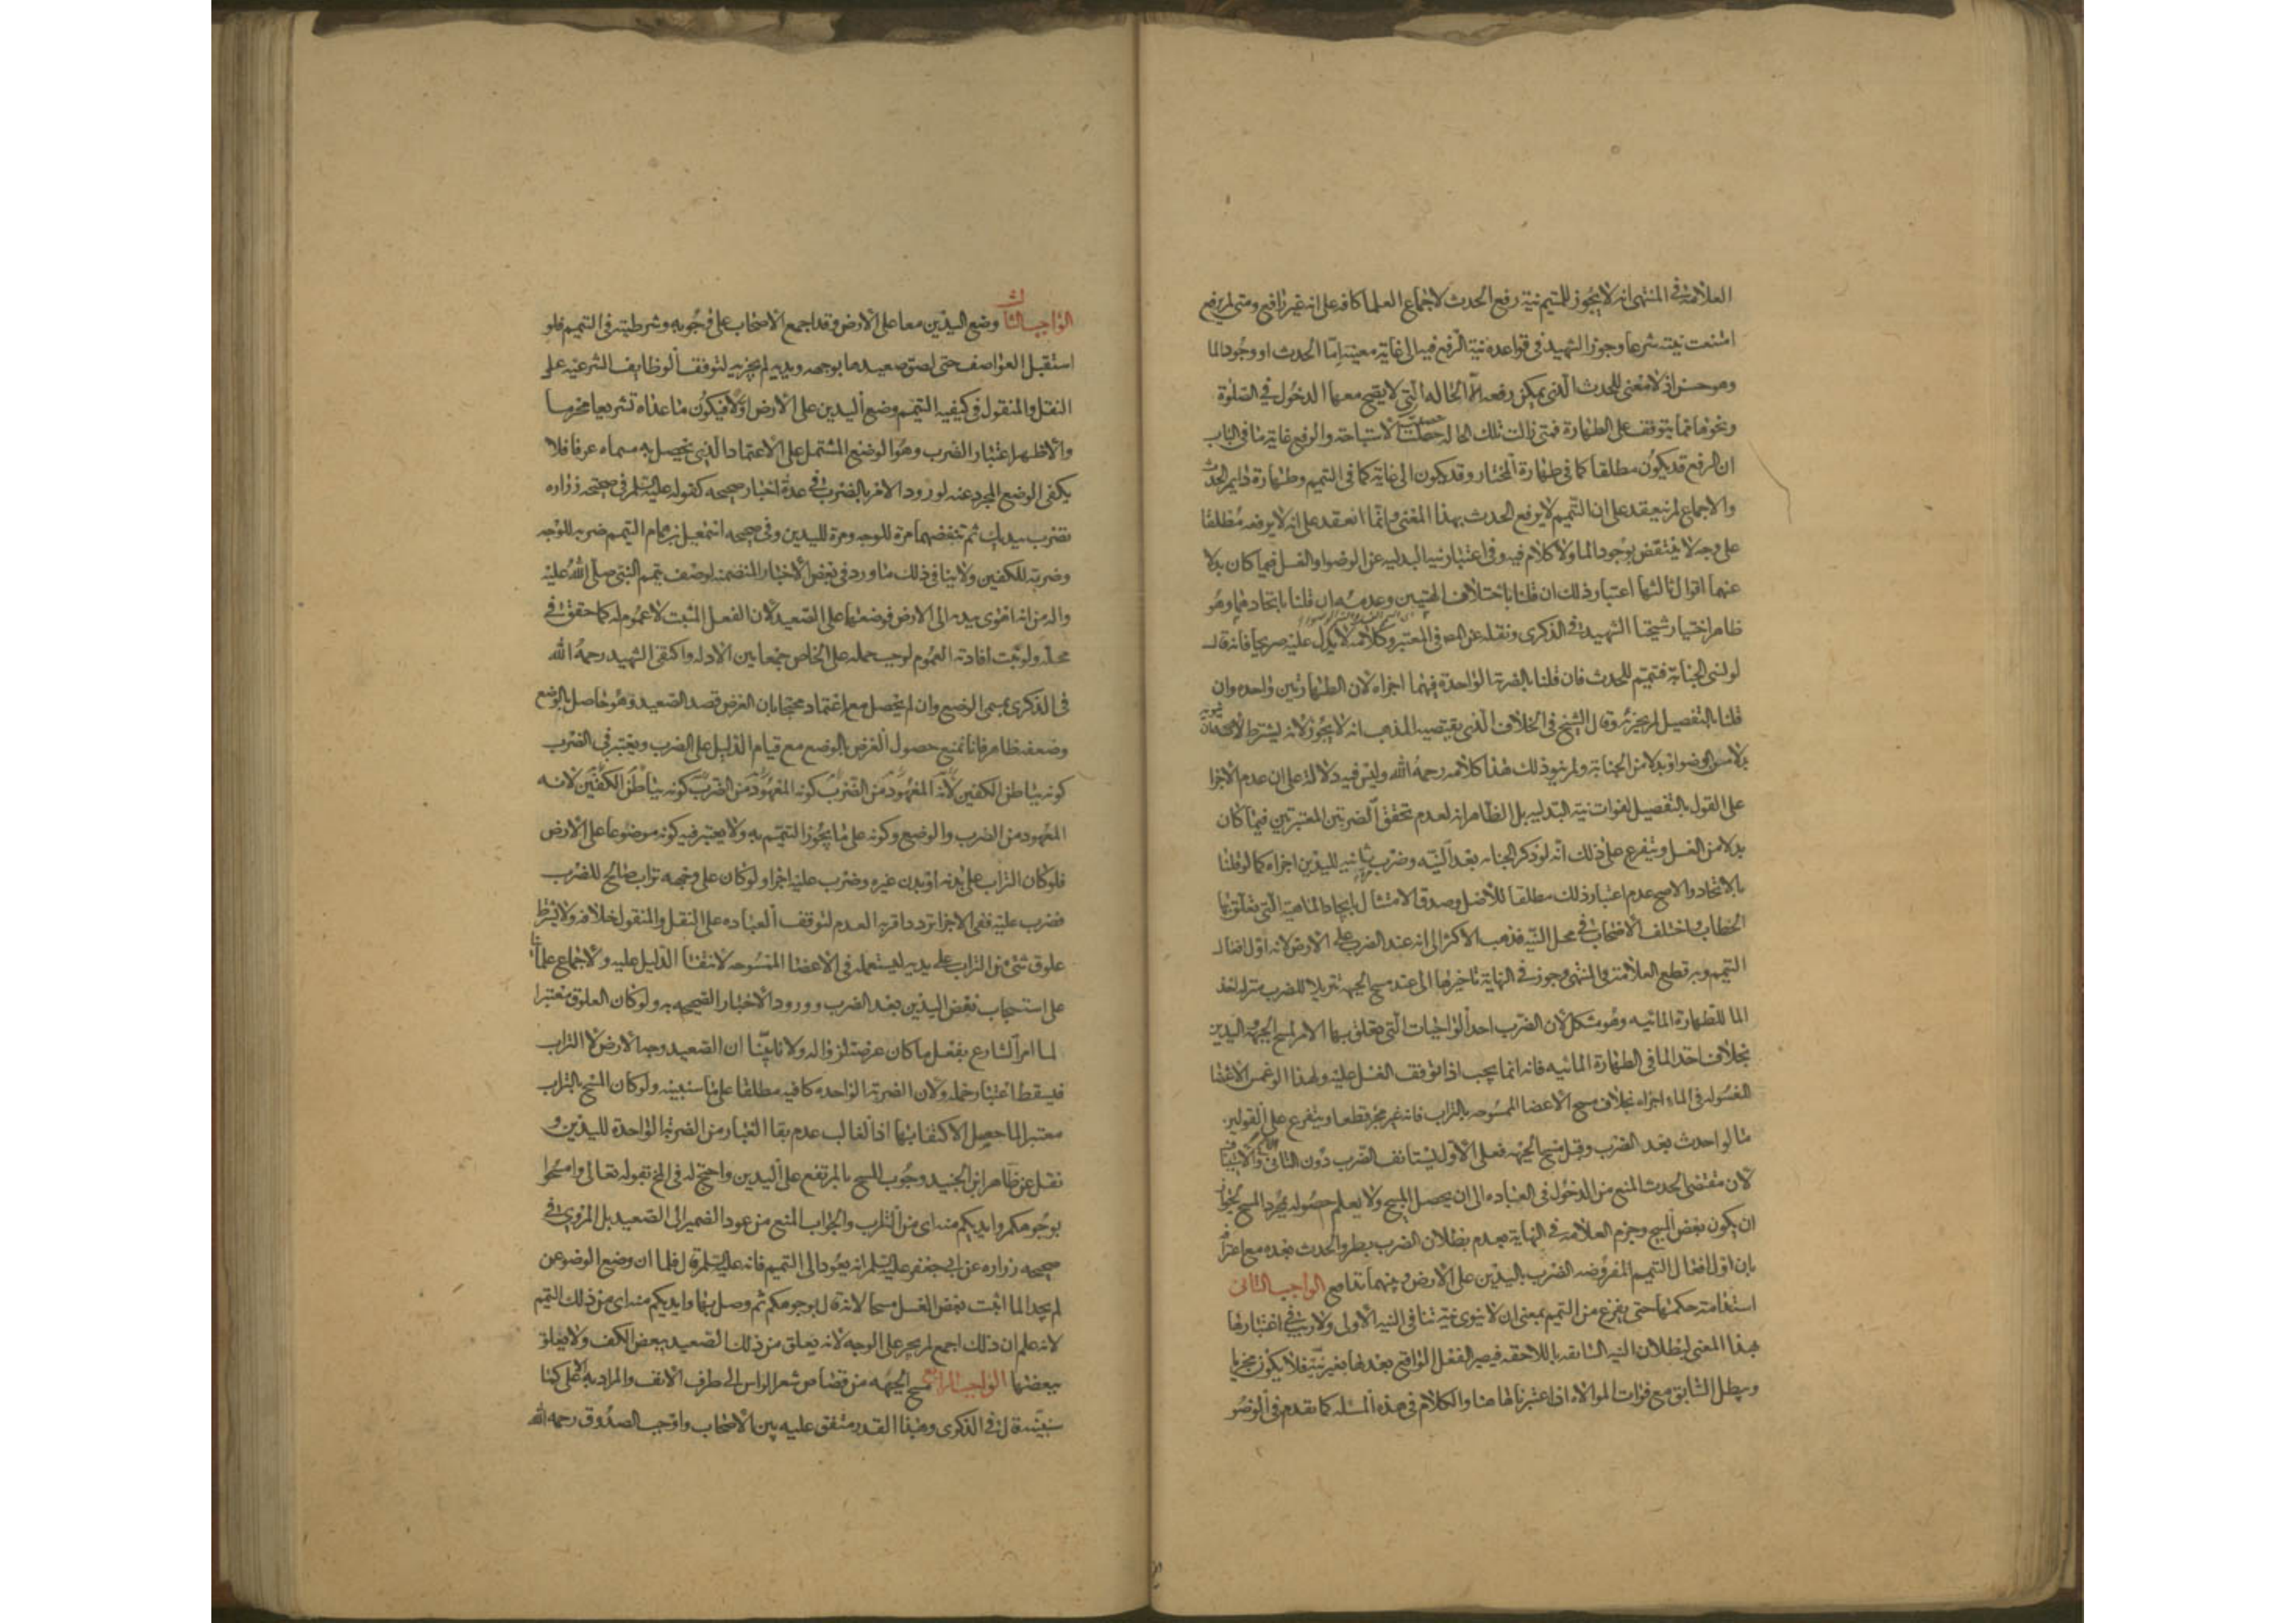 العلامة في المنتهى انه لا يجوز للمتيمم نية رفع الحدث لاجماع العلما كافه على انه غير رافع ومتى لم يرفع
امتنعت نيته شرعا وجوز الشهيد في قواعده نية الرفع فيه الى غاية معينة اما الحدث او وجود الما
وهو حسن اذ لا معنى للحدث الذي يمكن رفعه الا الحاله التي لا يصح معها الدخول في الصلوة
ونحوها مما يتوقف على الطهارة فمتى زالت تلك الحاله حصلت الاستباحة والرفع غاية ما في الباب
ان الرفع قد يكون مطلقا كما في طهارة المختار وقد يكون الى غاية كما في التيمم وطهارة دايم الحدث
والاجماع لم ينعقد على ان التيمم لا يرفع الحدث بهذا المعنى وانما انعقد على انه لا يرفعه مطلقا
على وجه لا ينتقض بوجود الما ولا كلام فيه وفي اعتبار نية البدليه عن الوضوا والغسل فيما كان بدلا
عنهما اقوال ثالثها اعتبار ذلك ان قلنا باختلاف الهيتين وعدمه ان قلنا باتحادهما وهو
ظاهر اختيار شيخنا الشهيد في الذكرى ونقله عن المص في المعتبر وكلامه لا يدل عليه صريحا فانه قال
لو نسى الجنابة فتيمم للحدث فان قلنا بالضربة الواحدة فيهما اجزاه لان الطهارتين واحده وان
قلنا بالتفصيل لم يجزه وقال الشيخ في الخلاف الذي يقتضيه المذهب انه لا يجوز لانه يشترط
بدلا من الوضوا او بدلا من الجنابة ولم ينو ذلك هذا كلامه رحمه الله وليس فيه دلالة على ان عدم الاجزا
على القول بالتفصيل لفوات نية البدليه بل الظاهر انه لعدم تحقق الضربتين المعتبرتين فيما كان
بدلا من الغسل ويتفرع على ذلك انه لو ذكر الجنابه بعد النيه وضرب ثانيه لليدين اجزاه كما لو قلنا
بالاتحاد والاصح عدم اعتبار ذلك مطلقا للأصل وصدق الامتثال بايجاد الماهية التي تعلق بها
الخطاب واختلف الاصحاب في محل النيه فذهب الاكثر الى انه عند الضرب على الارض لانه اول افعال
التيمم وبه قطع العلامة في المنتهى وجوز في النهاية تاخيرها الى عند مسح الجبهة تنزيلا للضرب منزلة اخذ
الما للطهارة المائيه وهو مشكل لان الضرب احد الواجبات التي تعلق بها الامر لمسح الجبهة واليدين
بخلاف اخذ الما في الطهارة المائيه فانه انما يجب اذا توقف الغسل عليه ولهذا لو غمس الاعضا
المغسوله في الماء اجزاه بخلاف مسح الاعضا الممسوحه بالتراب فانه غير مجز قطعا ويتفرع على القولين
ما لو احدث بعد الضرب وقبل مسح الجبهه فعلى الاول يستانف الضرب دون الثاني والاستيناف
لان مقتضى الحدث المنع من الدخول في العباده الى ان يحصل المبيح ولا يعلم حصوله بمجرد المسح لجواز
ان يكون بعض المبيح وجزم العلامه في النهاية بعدم بطلان الضرب بطرو الحدث بعده مع اعترافه
بان اول افعال التيمم المفروضه الضرب باليدين على الارض وبينهما تدافع الواجب الثاني
استدامة حكمها حتى يفرغ من التيمم بمعنى ان لا ينوى نية تنافي النيه الأولى ولا ريب في اعتبارها
بهذا المعنى لبطلان النيه السابقه باللاحقه فيصير الفعل الواقع بعدها بغير نية فلا يكون مجزيا
ويبطل السابق مع فوات الموالاه اذا اعتبرناها هنا والكلام في هذه المسئله كما تقدم في الوضو
الواجب الثالث وضع اليدين معا على الارض وقد اجمع الاصحاب على وجوبه وشرطيته في التيمم فلو
استقبل العواصف حتى لصق صعيدها بوجهه ويديه لم يجزيه لتوقف الوظايف الشرعيه على
النقل والمنقول في كيفيه التيمم وضع اليدين على الارض اولا فيكون ما عداه تشريعا محرما
والاظهر اعتبار الضرب وهو الوضع المشتمل على الاعتماد الذي يحصل به مسماه عرفا فلا
يكفى الوضع المجرد عنه لورود الامر بالضرب في عدة اخبار صحيحه كقوله عليه السلم في صحيحه زراره
تضرب بيديك ثم تنفضهما مرة للوجه ومرة لليدين وفي صحيحه اسمعيل بن همام التيمم ضربه للوجه
وضربة للكفين ولا ينافي ذلك ما ورد في بعض الاخبار المتضمنه لوصف تيمم النبي صلى الله عليه
واله من انه اهوى بيديه الى الارض فوضعهما على الصعيد لان الفعل المثبت لا عموم له كما حقق في
محله ولو ثبت افادته العموم لوجب حمله على الخاص جمعا بين الادله واكتفى الشهيد رحمه الله
في الذكرى بمسمى الوضع وان لم يحصل معه اعتماد محتجا بان الغرض قصد الصعيد وهو حاصل بالوضع
وضعفه ظاهر فانا نمنع حصول الغرض بالوضع مع قيام الدليل على الضرب ويعتبر في الضرب
كونه بباطن الكفين لانه المعهود من الضرب كونه المعهود من الضرب كونه بباطن الكفين لانه
المعهود من الضرب والوضع وكونه على ما يجوز التيمم به ولا يعتبر فيه كونه موضوعا على الارض
فلو كان التراب على بدنه او بدن غيره وضرب عليه اجزا ولو كان على وجهه تراب صالح للضرب
فضرب عليه ففي الاجزا تردد اقربه العدم لتوقف العباده على النقل والمنقول خلافه ولا يشترط
علوق شئ من التراب على يديه ليستعمله في الاعضا الممسوحه لانتفا الدليل عليه ولاجماع علمائنا
على استحباب نفض اليدين بعد الضرب وورود الاخبار الصحيحه به ولو كان العلوق معتبرا
لما امر الشارع بفعل ما كان عرضة لزواله ولانا بينا ان الصعيد وجه الارض لا التراب
فيسقط اعتبار حمله ولان الضربة الواحده كافيه مطلقا على ما سنبينه ولو كان المسح بالتراب
معتبرا لما حصل الاكتفا بها اذ الغالب عدم بقا الغبار من الضربة الواحدة لليدين و
نقل عن ظاهر ابن الجنيد وجوب المسح بالمرتفع على اليدين واحتج له في المخ بقوله تعالى وامسحوا
بوجوهكم وايديكم منه اى من التراب والجواب المنع من عود الضمير الى الصعيد بل المروى في
صحيحه زراره عن ابي جعفر عليه السلم انه يعود الى التيمم فانه عليه السلم قال فلما ان وضع الوضو عن
لم يجد الما اثبت بعض الغسل مسحا لانه قال بوجوهكم ثم وصل بها وايديكم منه اى من ذلك التيمم
لانه علم ان ذلك اجمع لم يجر على الوجه لانه يعلق من ذلك الصعيد ببعض الكف ولا يعلق
ببعضها الواجب الرابع مسح الجبهه من قصاص شعر الراس الى طرف الانف والمراد به الاعلى كما
سنبينه قال في الذكرى وهذا القدر متفق عليه بين الاصحاب واوجب الصدوق رحمه الله